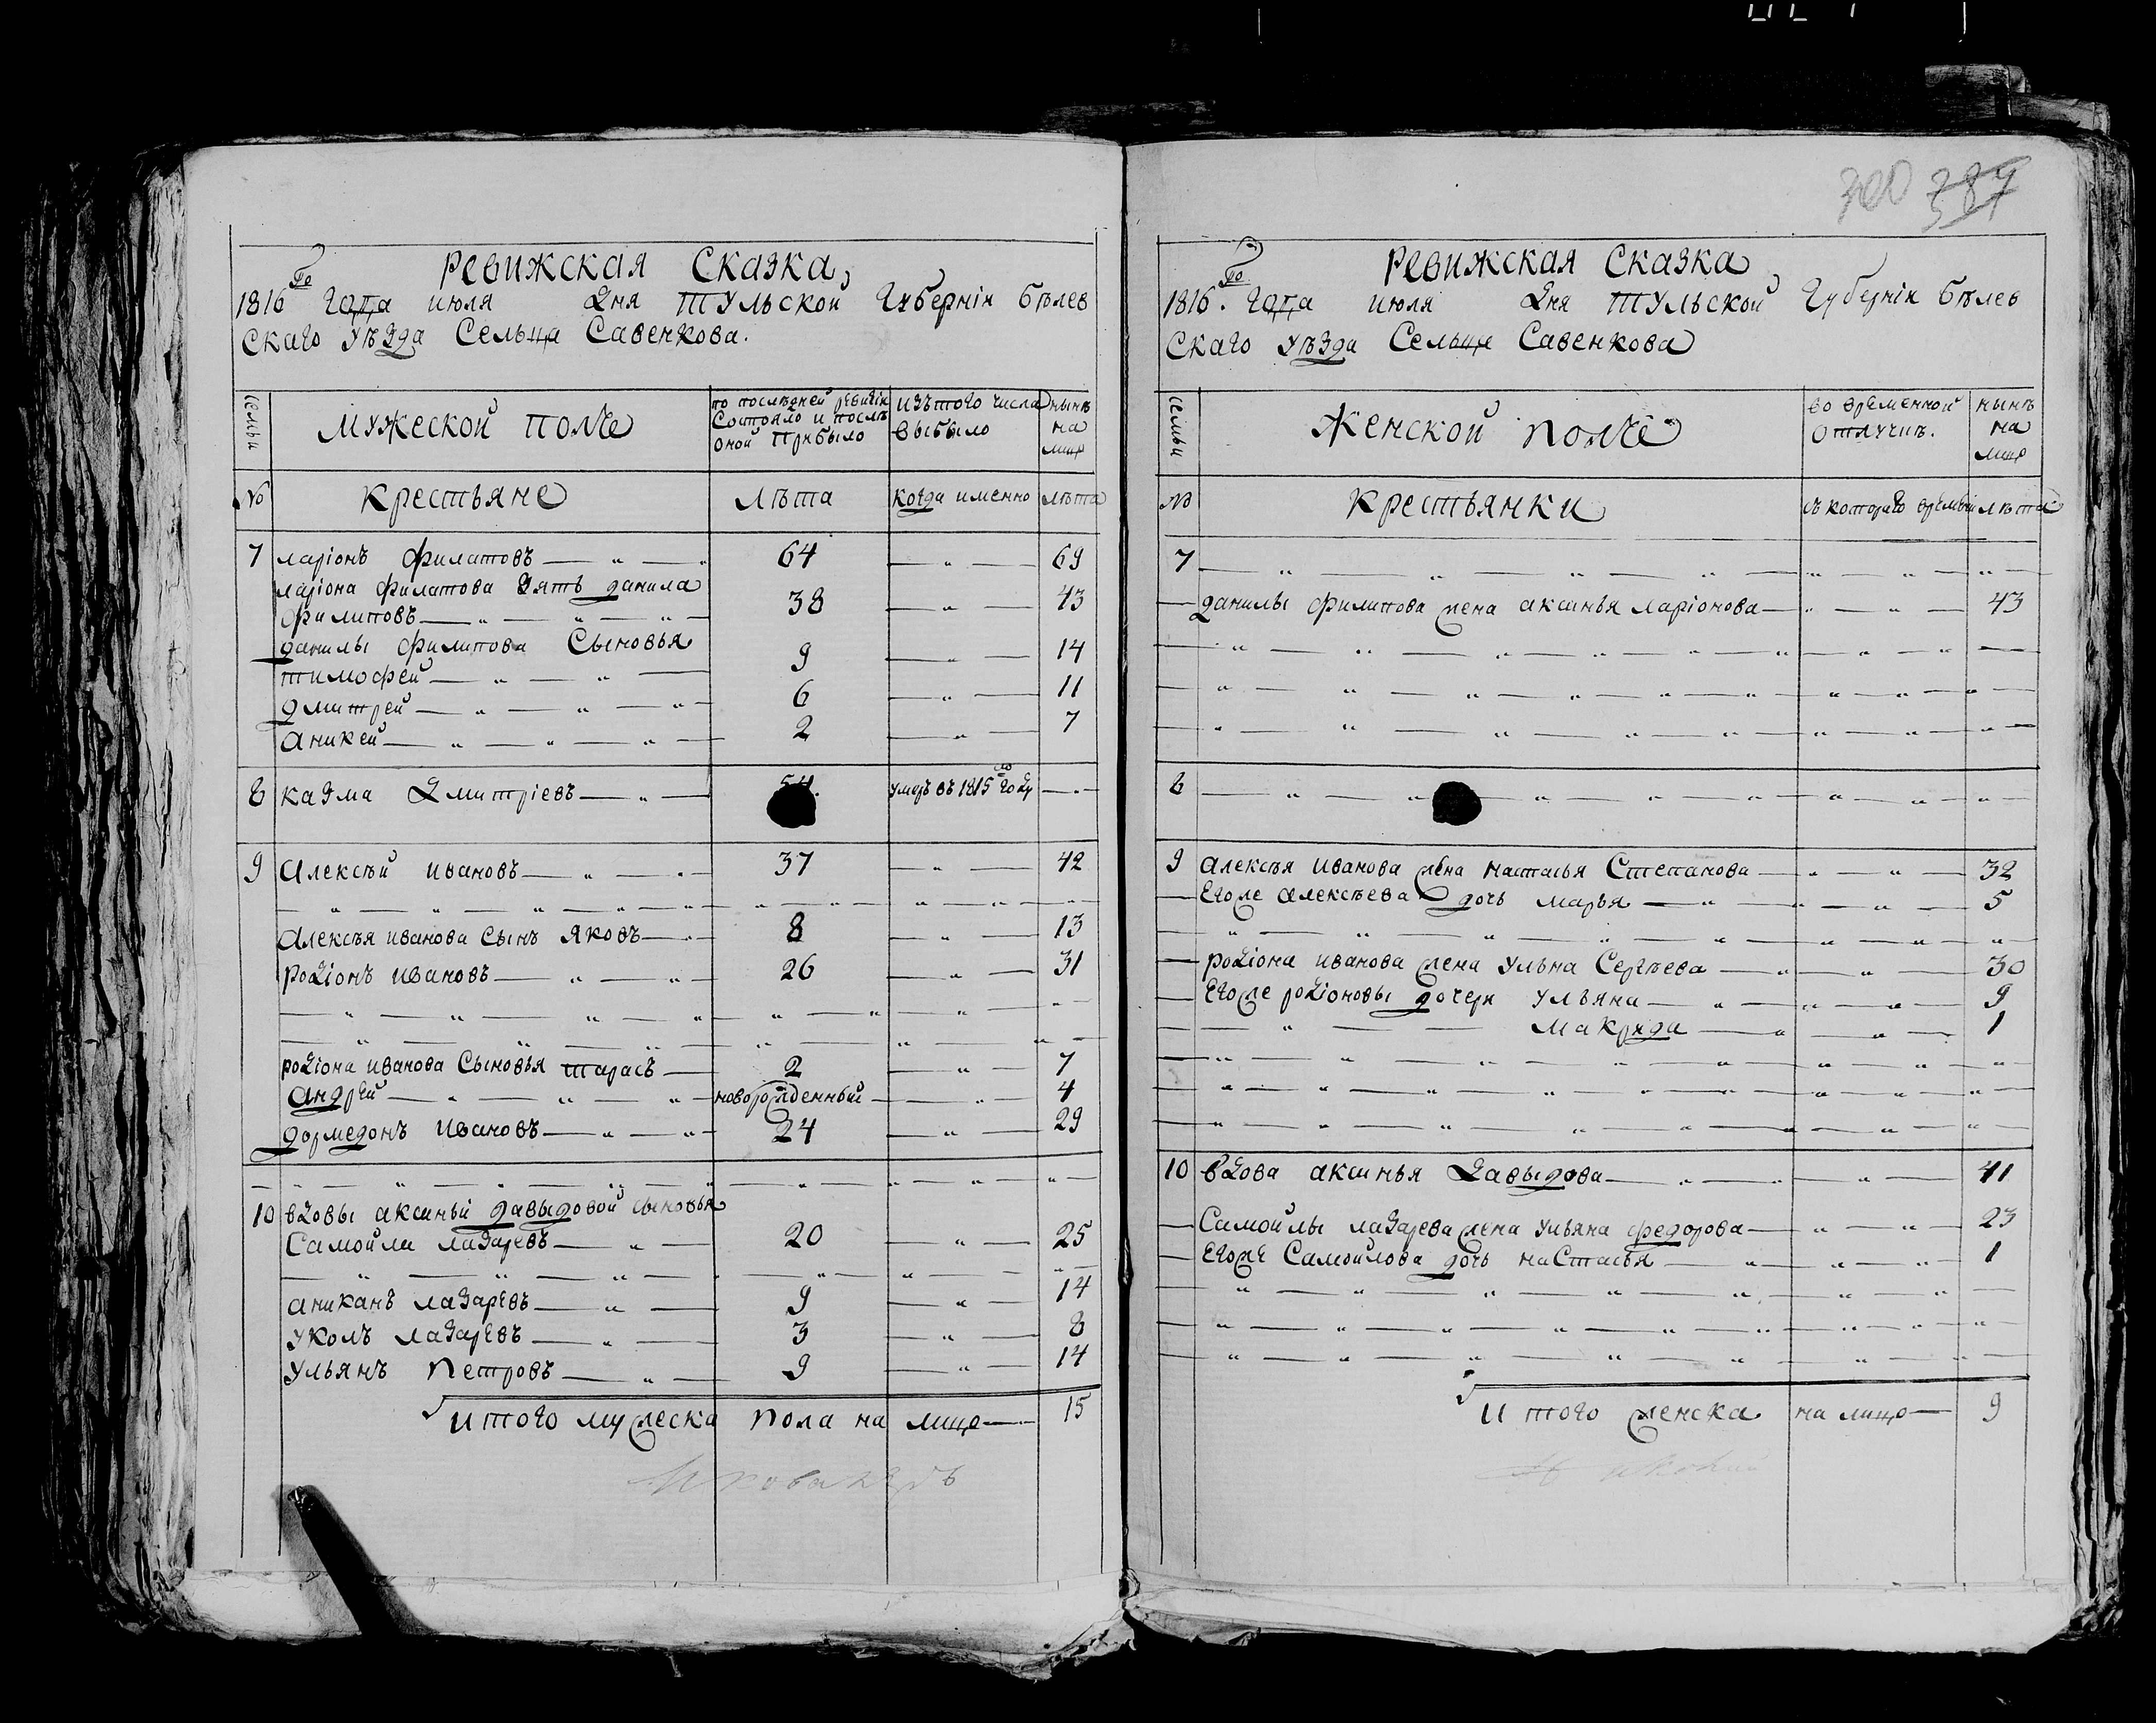 300 389
Ревижская Сказка
1816го Года июля Дня Тульской Губерніи Бѣлев
скаго уѣзда Сельца Савенкова.
семьи
Мужеской полъ
по послѣдней ревизіи
Состояло и послѣ
оной прибыло
изъ того числа
выбыло
нынѣ
на
лицо
№ крестьяне лѣта когда именно лѣта
7 ларіонъ филатовъ — „ — 64 — „ — 69
ларіона филатова зять данила
филиповъ — „ — „ — „ — 38 — „ — 43
данилы филипова Сыновья
тимофей — „ — „ — 9 — „ — 14
дмитрей — „ — „ — „ — 6 — „ — 11
аникей — „ — „ — „ — 2 — „ — 7
8 казма Дмитріевъ — „ — 54. умеръ въ 1815мъ году — „ —
9 Алексѣй ивановъ — „ — „ — 37 — „ — 42
Алексѣя иванова сынъ яковъ — „ — 8 — „ — 13
родіонъ ивановъ — „ — „ — 26 — „ — 31
родіона иванова Сыновья тарасъ — 2 — „ — 7
андрей — „ — „ — „ — новорожденный — „ — 4
дормедонъ ивановъ — „ — „ — 24 — „ — 29
10 вдовы аксиньи давыдовой сыновья
Самойла лазаревъ — „ — 20 — „ — 25
аниканъ лазаревъ — „ — 9 — „ — 14
уколъ лазаревъ — „ — 3 — „ — 8
ульянъ Петровъ — „ — 9 — „ — 14
итого мужеска пола на лицо — 15
Ревижская Сказка
1816го. Года июля Дня Тульской Губерніи Бѣлев
скаго уѣзда Сельца Савенкова
семьи
Женской полъ
во временной
отлучкѣ.
нынѣ
на
лицо
№ крестьянки съ котораго времени лѣта
7 — „ — „ — „ — „ — „ — „ — „ —
данилы филипова жена аксинья ларіонова — „ — „ — 43
8 — „ — „ — „ — „ — „ — „ — „ —
9 алексѣя иванова жена настасья Степанова — „ — „ — 32
Его же алексѣева дочь марья — „ — „ — „ — 5
родіона иванова жена ульяна Сергѣева — „ — „ — 30
Его же родіоновы дочери ульяна — „ — „ — „ — 9
— „ — — макрида — „ — „ — 1
10 вдова аксинья Давыдова — „ — „ — „ — 41
Самойлы лазарева жена ульяна федорова — „ — „ — 23
Его же Самойлова дочь настасья — „ — „ — „ — 1
итого женска на лицо — 9